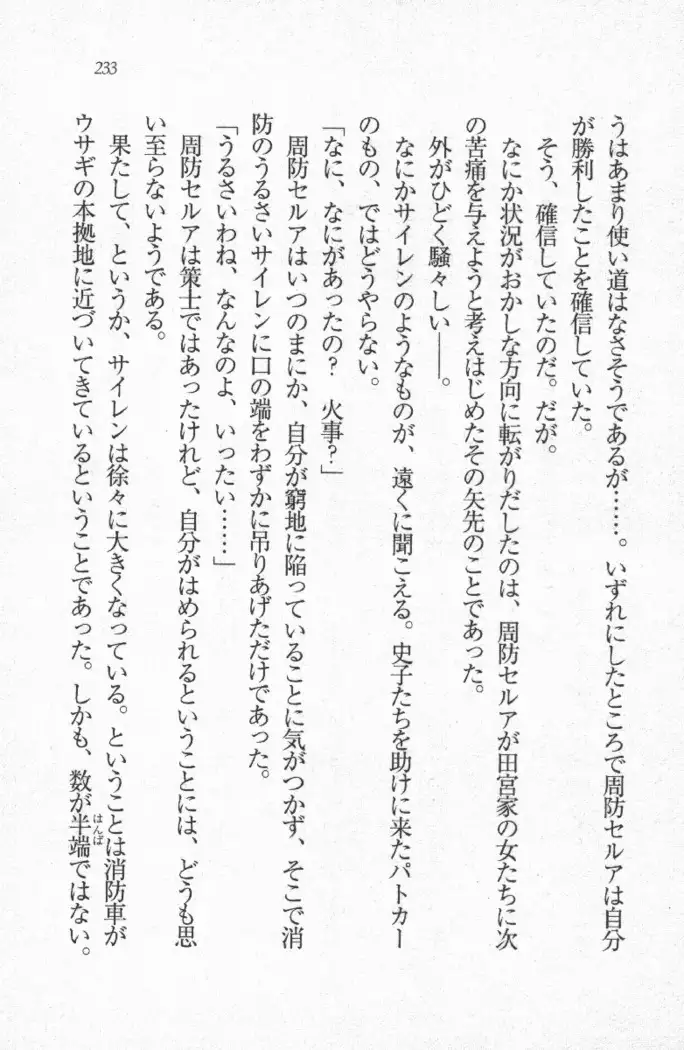 233
うはあまり使い道はなさそうであるが……。いずれにしたところで周防セルアは自分
が勝利したことを確信していた。
そう、確信していたのだ。だが。
なにか状況がおかしな方向に転がりだしたのは、周防セルアが田宮家の女たちに次
の苦痛を与えようと考えはじめたその矢先のことであった。
外がひどく騒々しい――。
なにかサイレンのようなものが、遠くに聞こえる。史子たちを助けに来たパトカー
のもの、ではどうやらない。
「なに、なにがあったの？　火事？」
周防セルアはいつのまにか、自分が窮地に陥っていることに気がつかず、そこで消
防のうるさいサイレンに口の端をわずかに吊りあげただけであった。
「うるさいわね、なんなのよ、いったい……」
周防セルアは策士ではあったけれど、自分がはめられるということには、どうも思
い至らないようである。
果たして、というか、サイレンは徐々に大きくなっている。ということは消防車が
ウサギの本拠地に近づいてきているということであった。しかも、数が半端ではない。
はんぱ